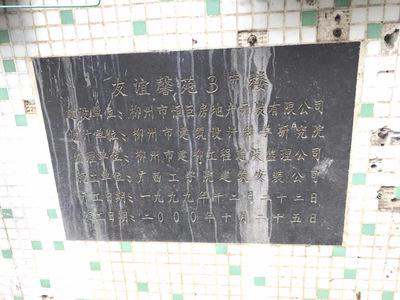 友谊馨苑3#楼
建设单位:柳州市恒巨房地产开发有限公司
设计单位:柳州市建筑设计科学研究院
监理单位:柳州市建 工程建设监理公司
施工单位:广西工学院建筑安装公司
开工日期:一九九九年十二月二十二日
竣工日期:二000年十月二十五日